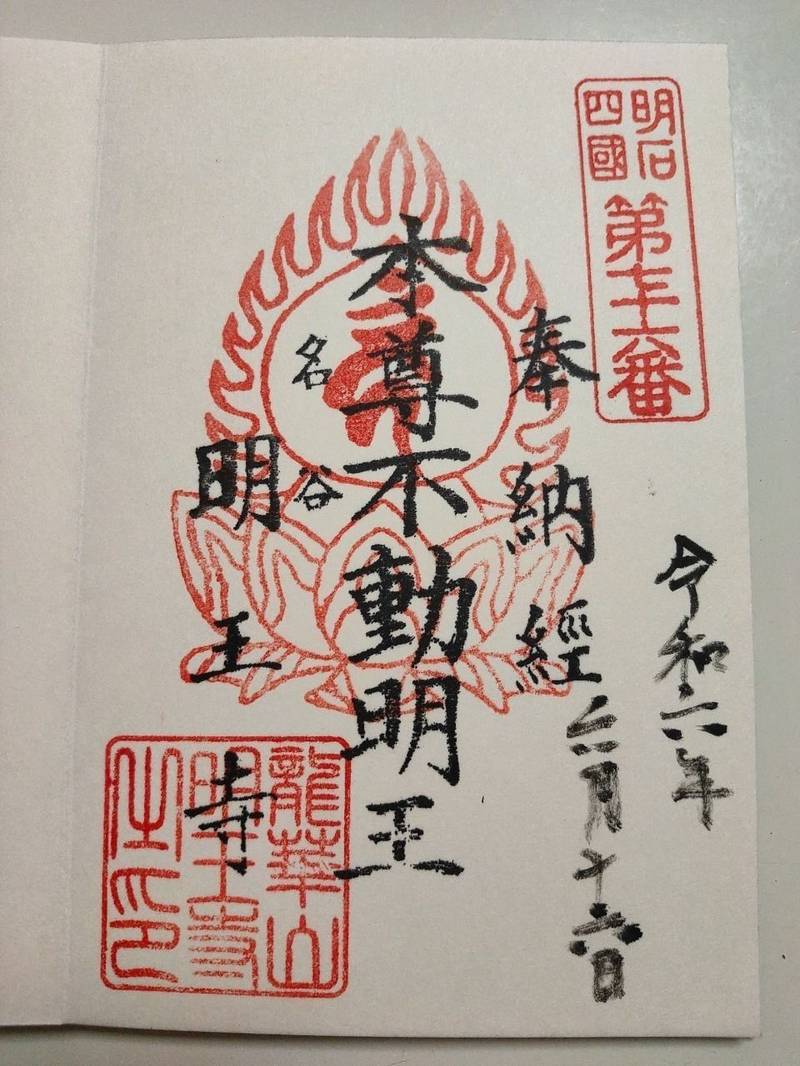 明石
四國
第七十六番
令和六年
六月十六日
奉納經
本尊不動明王
名谷
明王寺
龍華山
明王寺
之印